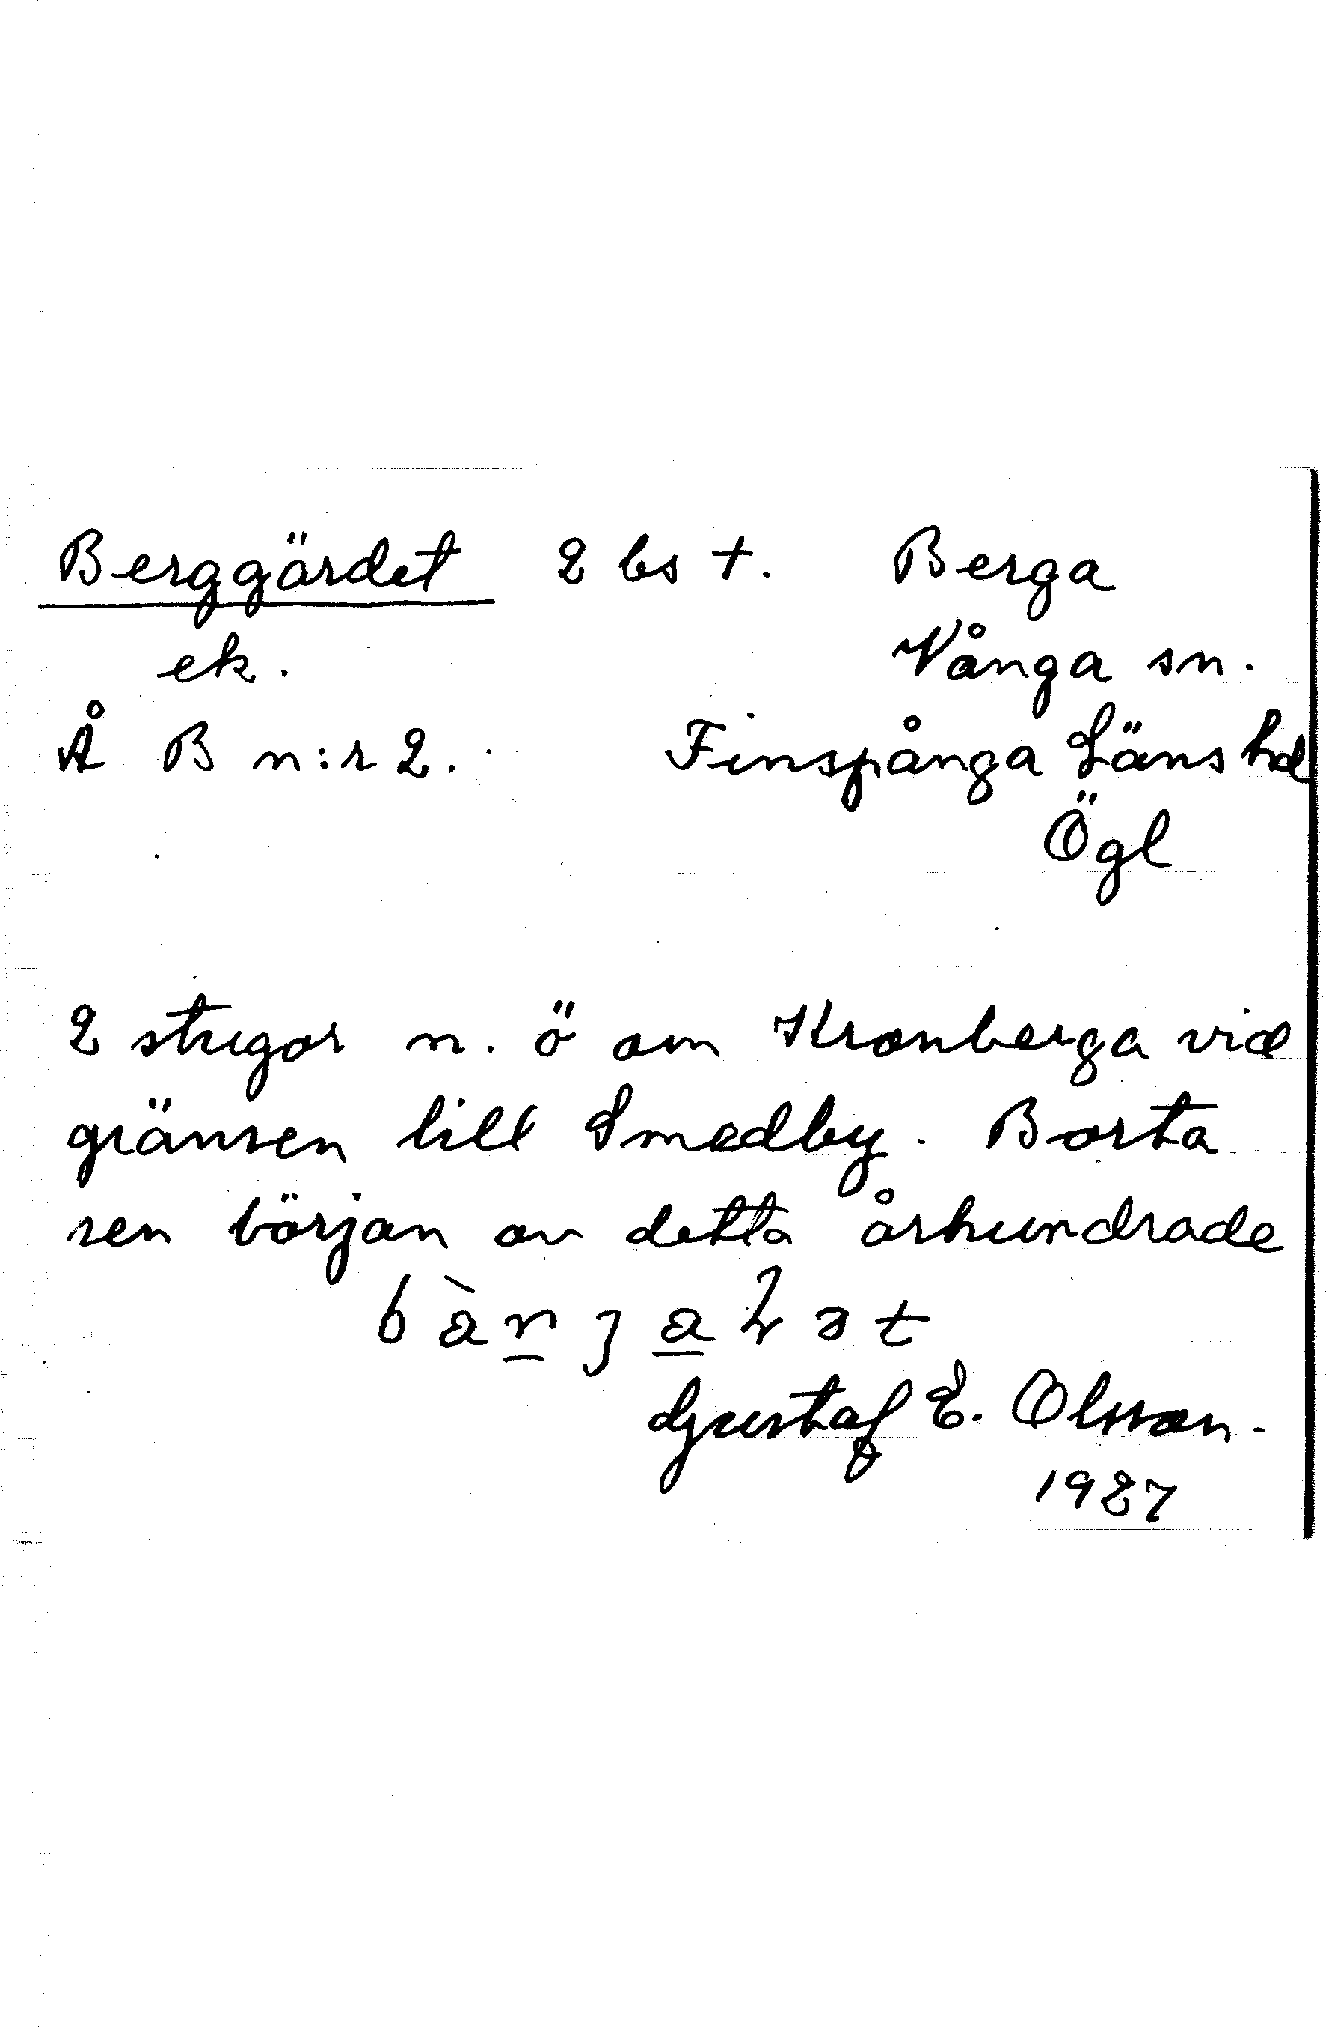 Berggärdet 2 bs †. Berga
ek. Vånga sn.
Å B n:r 2. Finspånga Läns hd
Ögl
2 stugor n. ö om Kronberga vid
gränsen till Smedby. Borta
sen början av detta århundrade
Gustaf E. Olsson.
1927